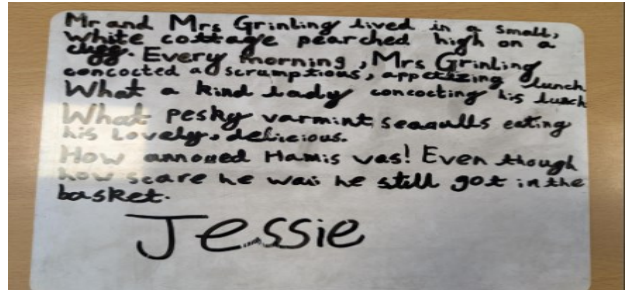 Mr and Mrs Grinling lived in a small,
white cottage pearched high on a
cligg. Every morning, Mrs Grinling
concocted a scrumptious, appetizing lunch
What a kind lady concocting his lunch
What pesky varmint seagulls eating
his lovely, delicious.
How annoued Hamis was! Even though
how scare he was he still got in the
basket.
Jessie